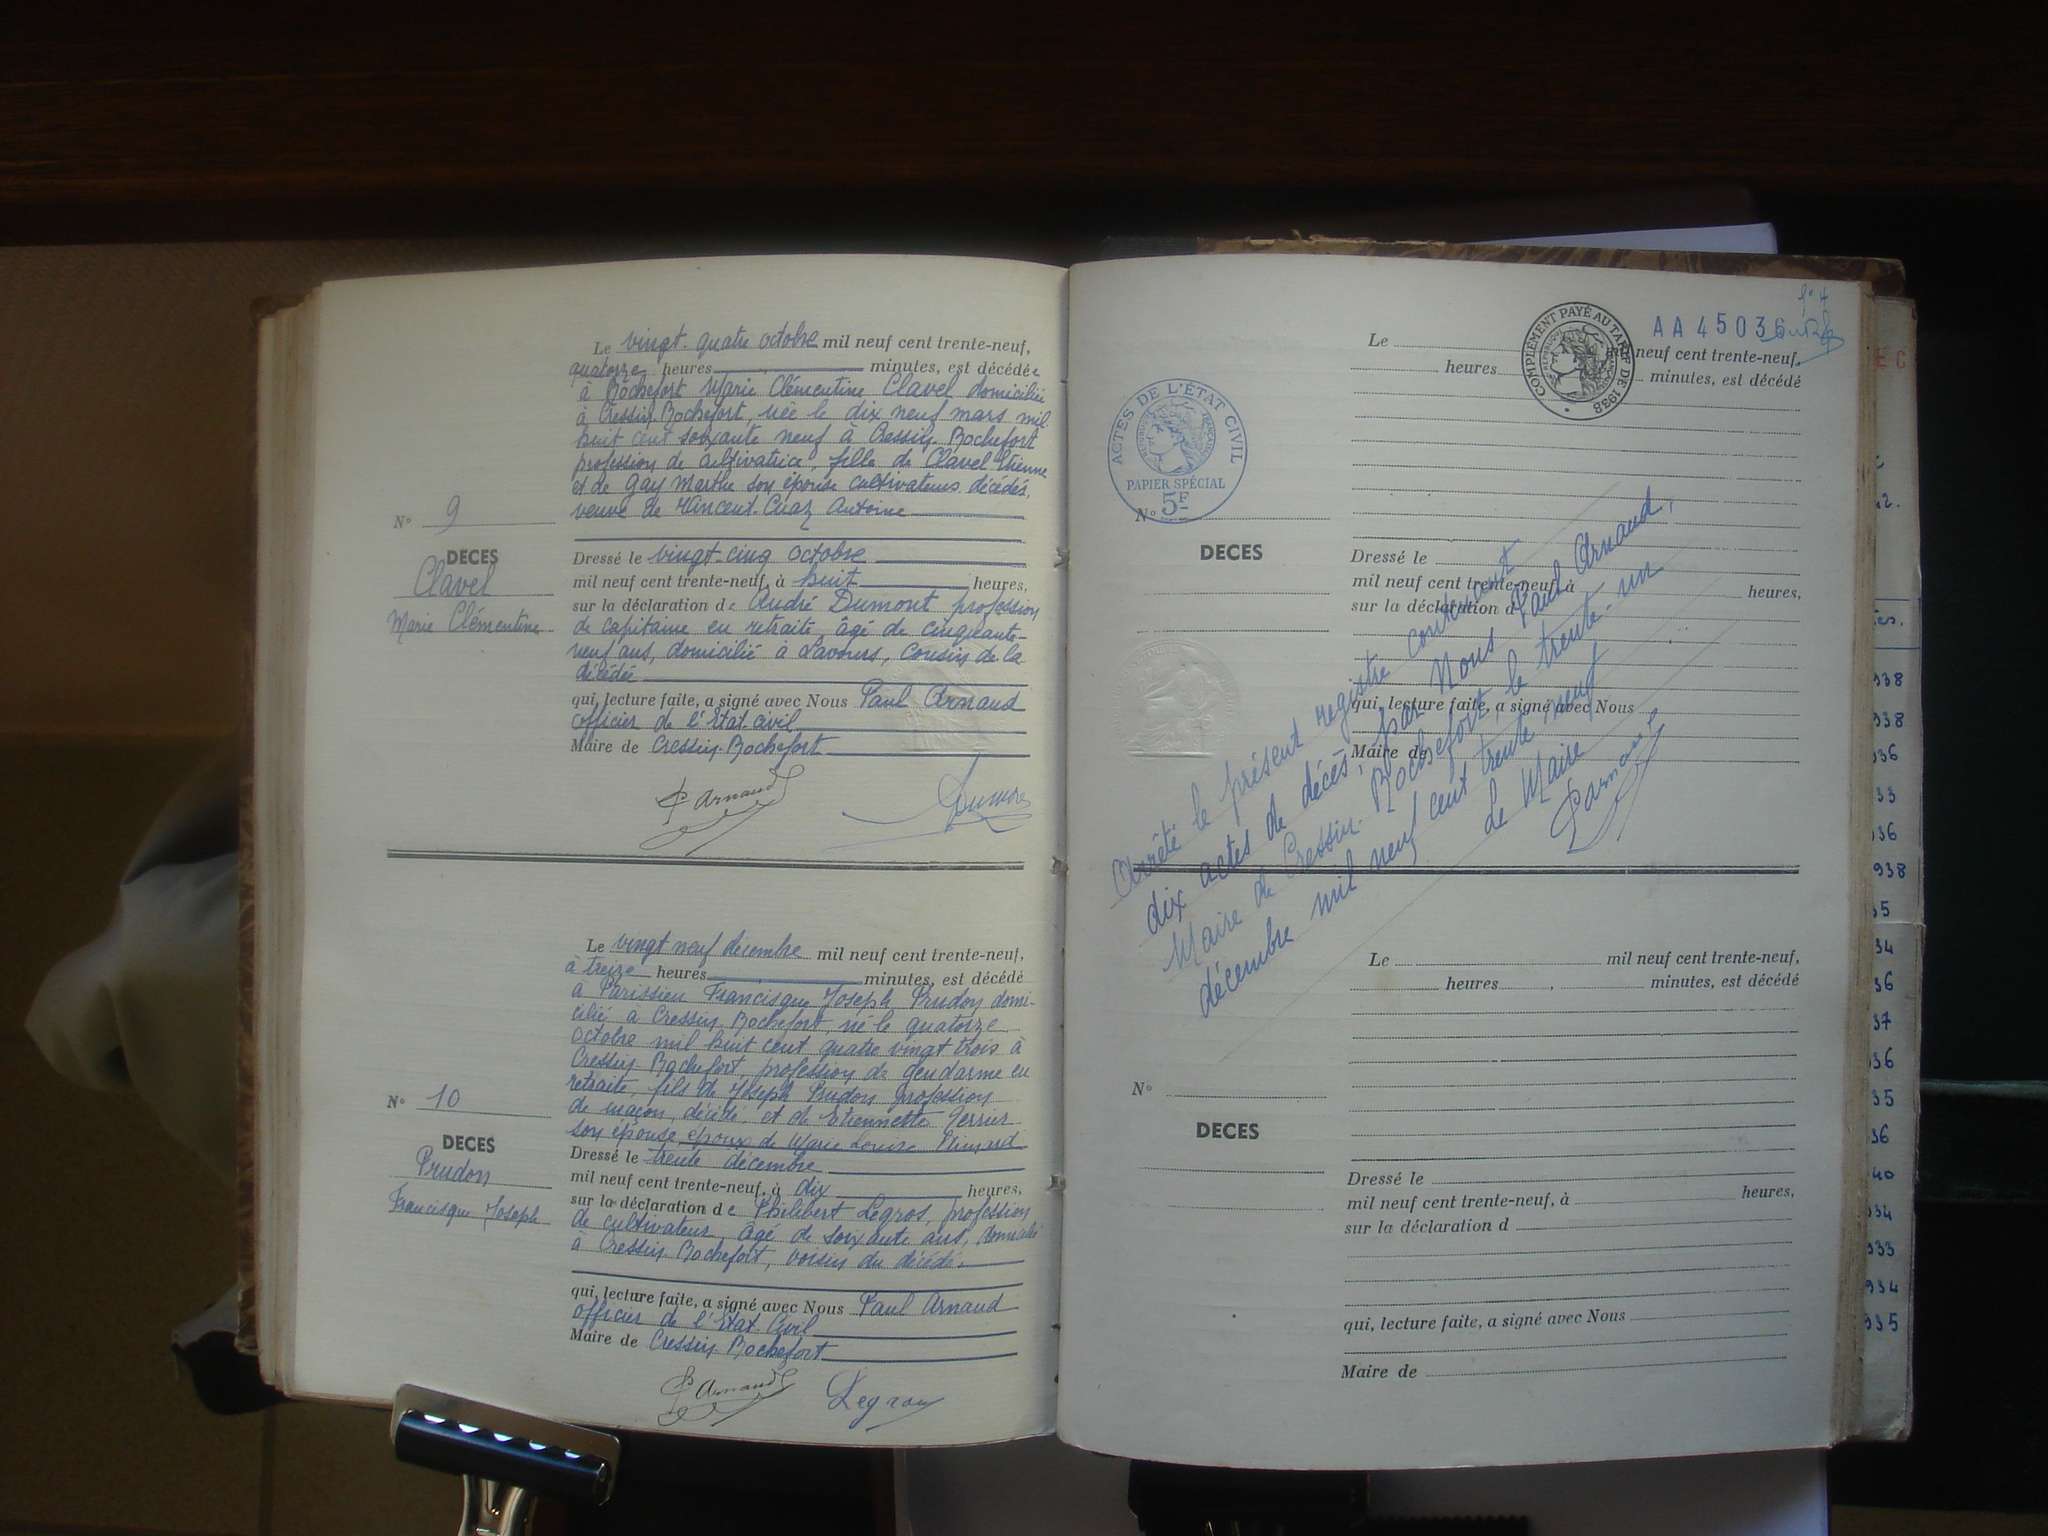 Le vingt-quatre octobre mil neuf cent trente-neuf,
quatorze heures minutes, est décédée
à Rochefort Marie Clémentine Clavel domiciliée
à Cressin-Rochefort, née le dix neuf mars mil
huit cent soixante neuf à Cressin-Rochefort
profession de cultivatrice, fille de Clavel Etienne
et de Gay Marthe son épouse cultivateurs décédés,
veuve de Vincent-Cuaz Antoine
N° 9
DECES
Clavel
Marie Clémentine
Dressé le vingt-cinq octobre
mil neuf cent trente-neuf, à huit heures,
sur la déclaration de André Dumont profession
de capitaine en retraite âgé de cinquante-
neuf ans, domicilié à Lavours, cousin de la
décédée
qui, lecture faite, a signé avec Nous Paul Arnaud
officier de l'Etat-civil
Maire de Cressin-Rochefort
P Arnaud
Dumont
Le vingt neuf décembre mil neuf cent trente-neuf,
à treize heures minutes, est décédé
à Parissieu Francisque Joseph Prudon domi-
cilié à Cressin-Rochefort, né le quatorze
octobre mil huit cent quatre vingt trois à
Cressin-Rochefort, profession de gendarme en
retraite, fils de Joseph Prudon profession
de maçon, décédé et de Etiennette
son épouse époux de Marie Louise
N° 10
DECES
Prudon
Francisque Joseph
Dressé le trente décembre
mil neuf cent trente-neuf, à dix heures,
sur la déclaration de Philibert Legros, profession
de cultivateur, âgé de soixante ans, domicilié
à Cressin-Rochefort, voisin du décédé.
qui, lecture faite, a signé avec Nous Paul Arnaud
officier de l'Etat-Civil
Maire de Cressin-Rochefort
P Arnaud
Legros
AA 45036
COMPLÉMENT PAYÉ AU TARIF DE 1938
Le neuf cent trente-neuf,
heures minutes, est décédé
ACTES DE L'ÉTAT CIVIL
RÉPUBLIQUE FRANÇAISE
PAPIER SPÉCIAL
5F
N°
DECES
Dressé le
mil neuf cent trente-neuf, à heures,
sur la déclaration d
qui, lecture faite, a signé avec Nous
Maire de
Arrêté le présent registre contenant
dix actes de décès, par Nous Paul Arnaud,
Maire de Cressin-Rochefort, le trente-un
décembre mil neuf cent trente neuf
Le Maire
P Arnaud
Le mil neuf cent trente-neuf,
heures , minutes, est décédé
N°
DECES
Dressé le
mil neuf cent trente-neuf, à heures,
sur la déclaration d
qui, lecture faite, a signé avec Nous
Maire de